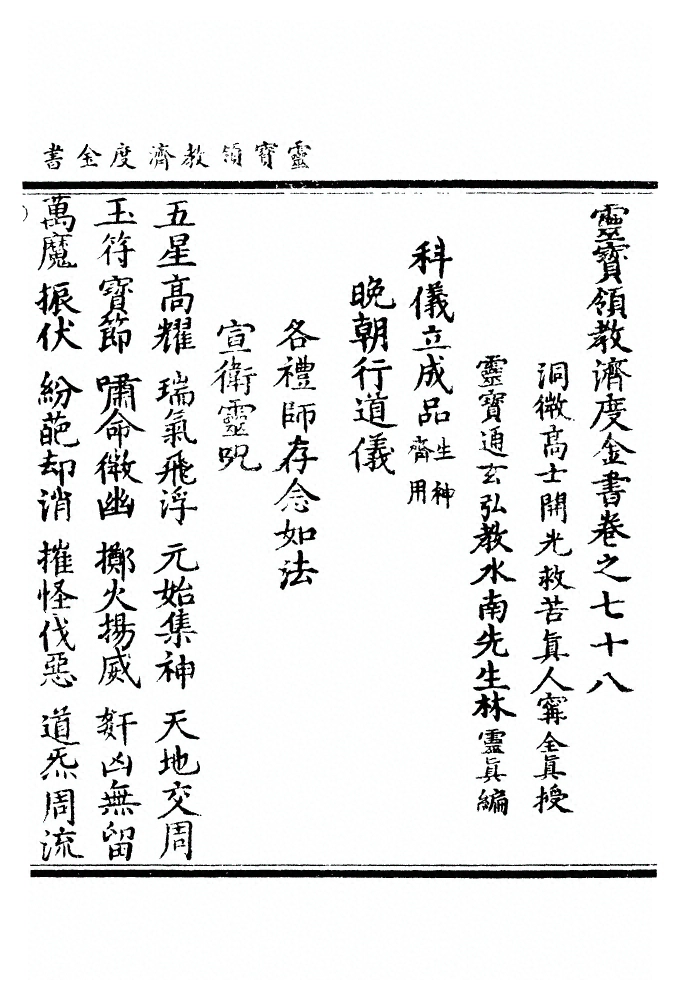 靈寶領教濟度金書
靈寶領教濟度金書卷之七十八
洞微高士開光救苦眞人甯全眞授
靈寶通玄弘教水南先生林靈眞編
科儀立成品生神齋用
晚朝行道儀
各禮師存念如法
宣衛靈呪
五星高耀 瑞氣飛浮 元始集神 天地交周
玉符寶節 嘯命徵幽 擲火揚威 姧凶無留
萬魔振伏 紛葩却消 摧怪伐惡 道炁周流